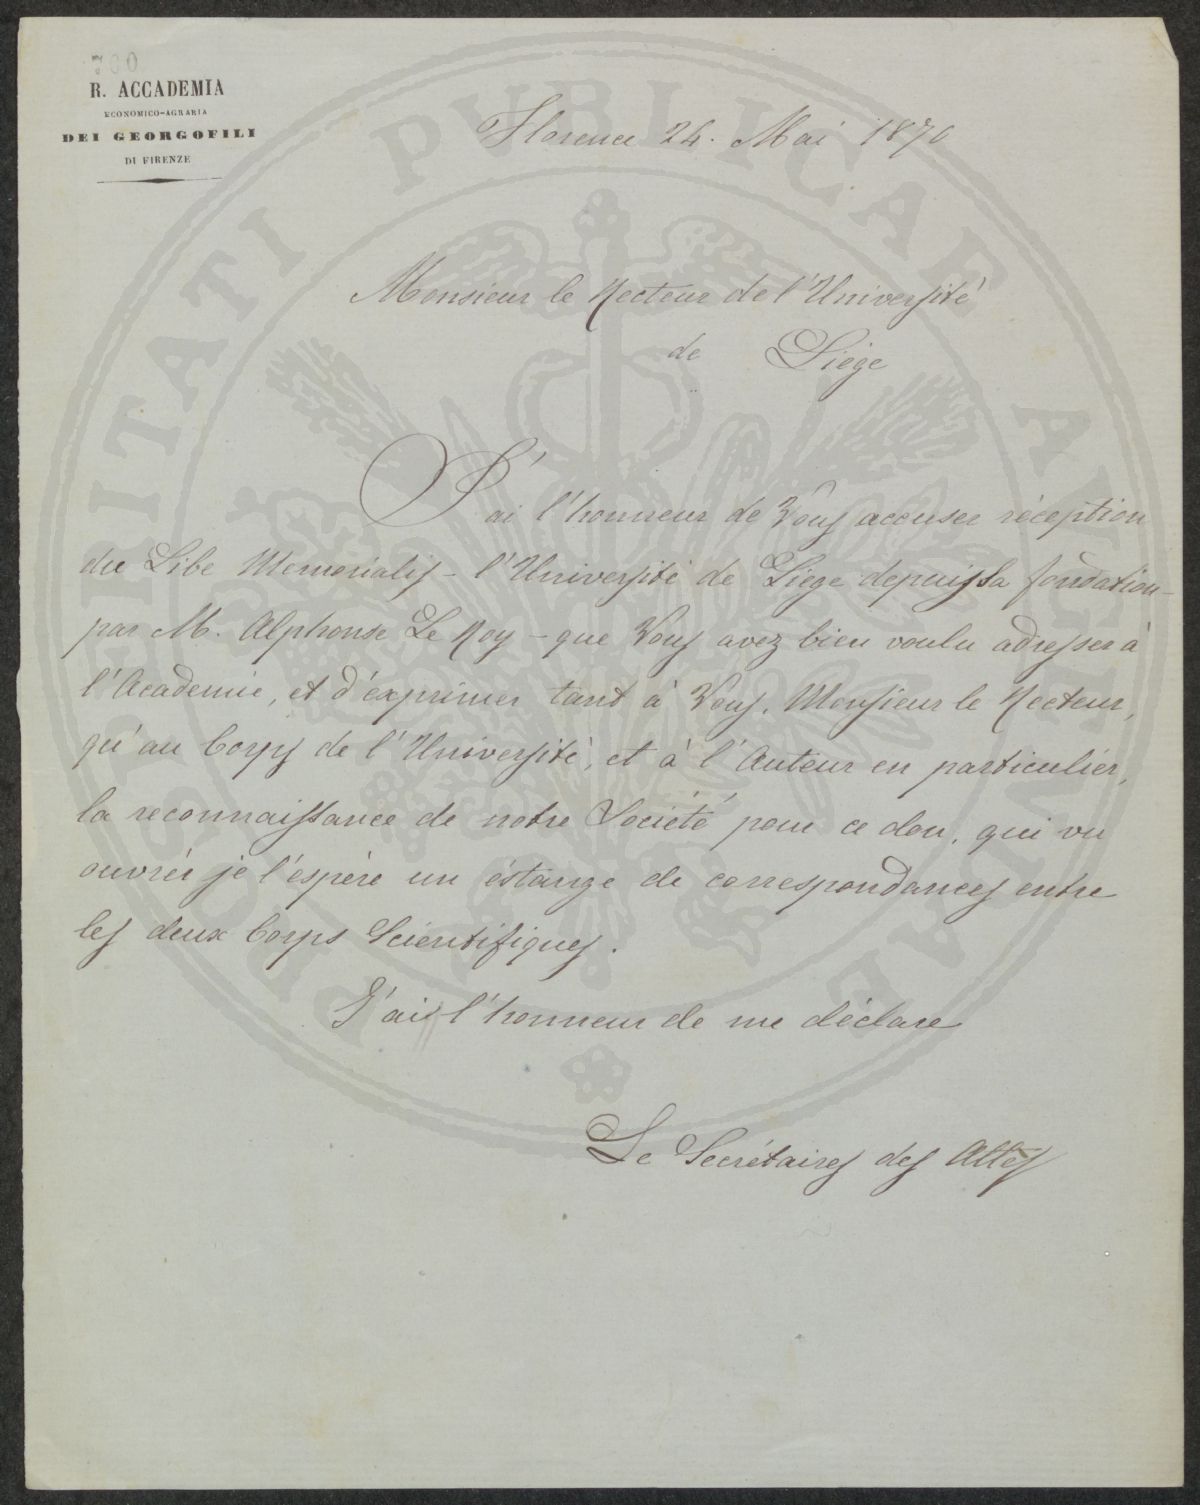 730
R. ACCADEMIA
ECONOMICO-AGRARIA
DEI GEORGOFILI
DI FIRENZE
Florence 24. Mai 1870
Monsieur le Recteur de l'Université
de Liége
J'ai l'honneur de Vous accuser réception
du Libe Memorialis - l'Université de Liege depuis sa fondation -
par M. Alphonse Le Roy - que Vous avez bien voulu adresser à
l'Academie, et d'exprimer tant à Vous, Monsieur le Recteur,
qu'au Corps de l'Université, et à l'Auteur en particulier,
la reconnaissance de notre Société pour ce don, qui va
ouvrir je l'espère un éstange de correspondances entre
les deux Corps Scientifiques.
J'ai l'honneur de me déclare
Le Secrétaires des Attes
PROSPERITATI PUBLICAE AUGENDAE